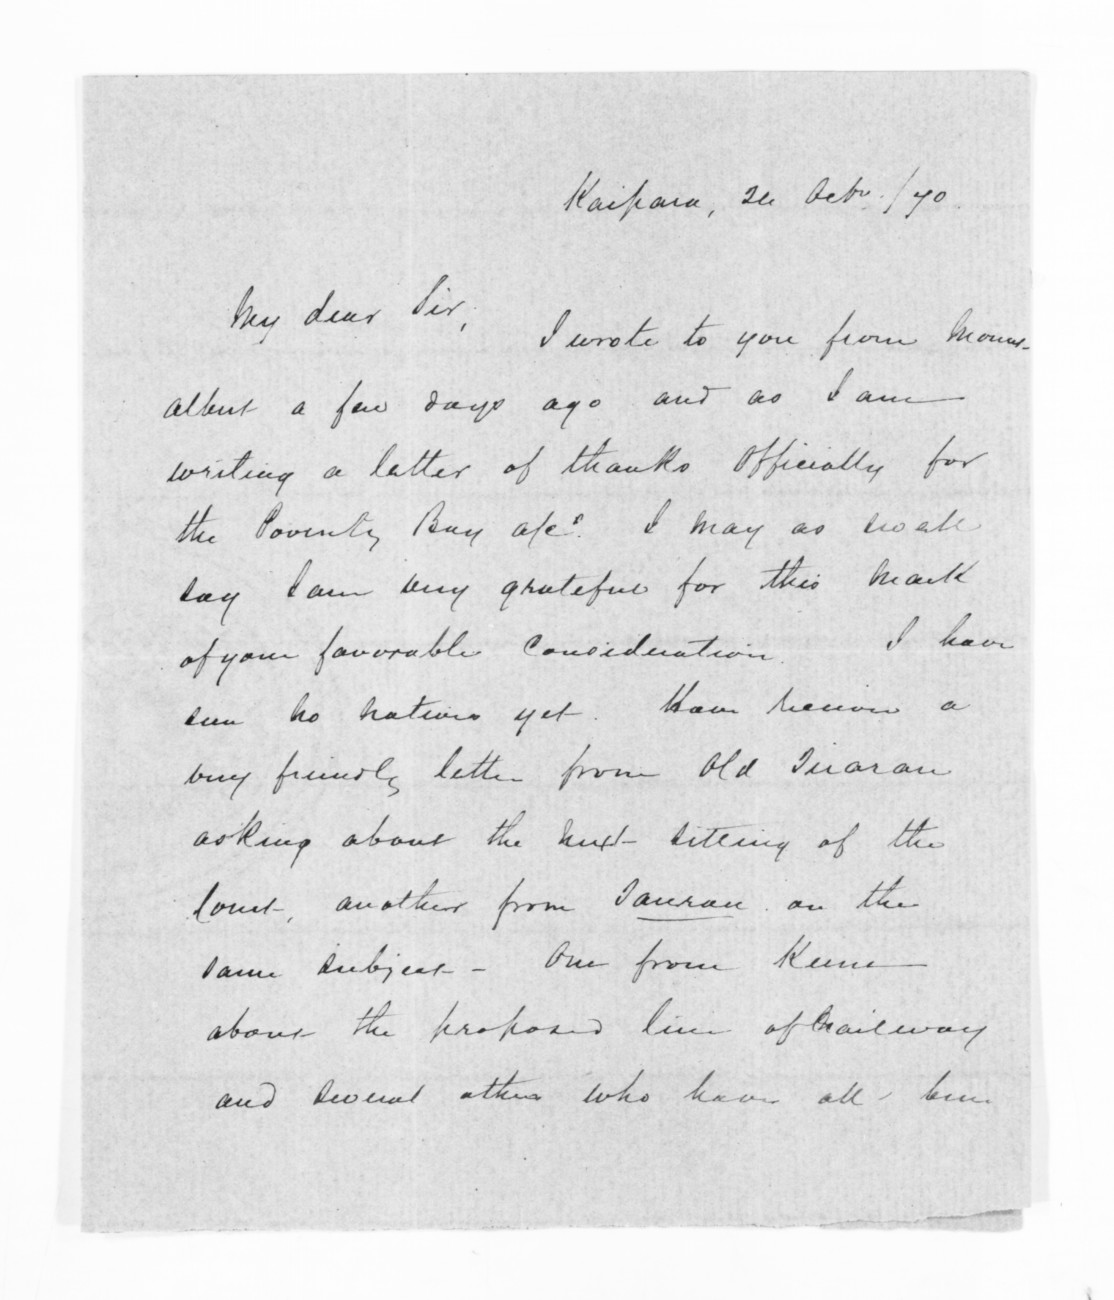 Kaipara, 24 Octr. /70
My dear Sir,
I wrote to you from Mount
Albert a few days ago and as I am
writing a letter of thanks Officially for
the Poverty Bay a/cs. I may as well
say I am very grateful for this mark
of your favorable Consideration. I have
seen no natives yet. Have received a
very friendly letter from Old
asking about the next sitting of the
Court, another from on the
same subject - One from Keene
about the proposed line of Railway
and several others who have all been